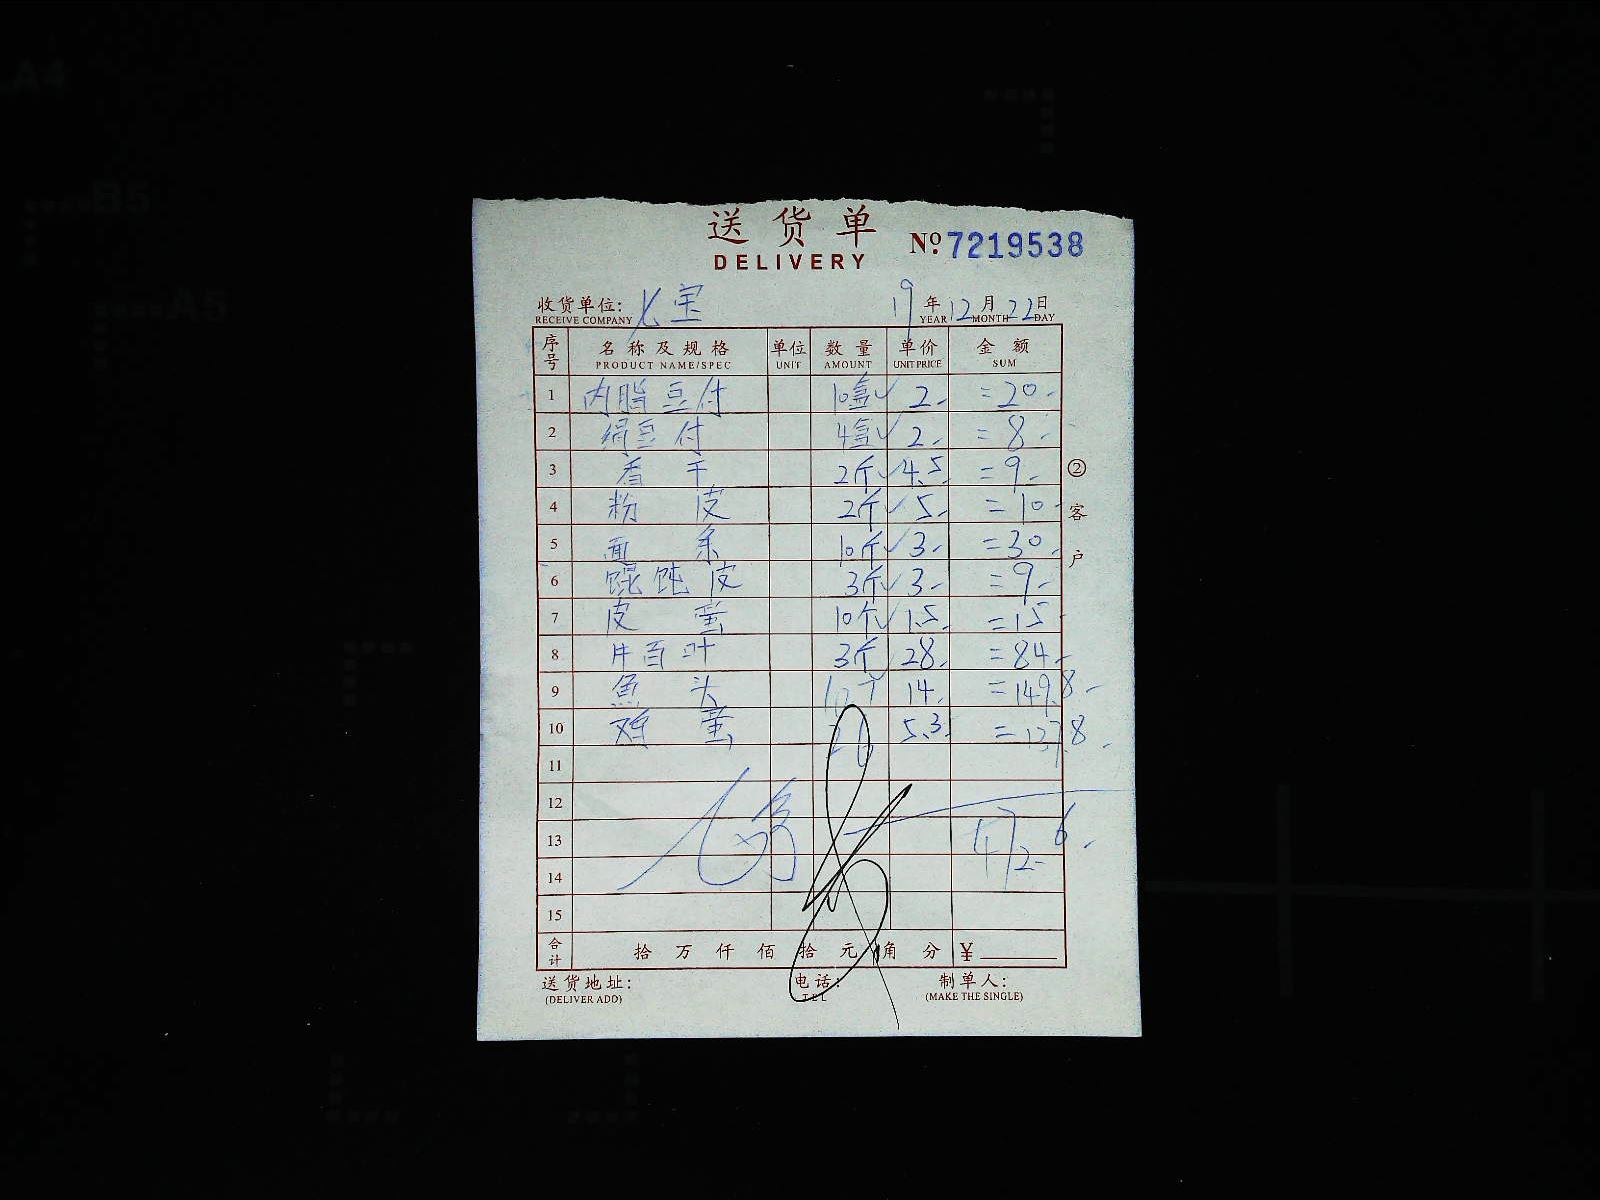 送货单
DELIVERY
No. 7219538
收货单位: 七宝 19年12月22日
RECEIVE COMPANY YEAR MONTH DAY
序号 名称及规格 单位 数量 单价 金额
PRODUCT NAME/SPEC UNIT AMOUNT UNIT PRICE SUM
1 内脂豆付 10盒✓ 2- =20-
2 绢豆付 4盒✓ 2- =8-
3 香干 2斤✓ 4.5 =9-
4 粉皮 2斤✓ 5- =10-
5 面系 10斤✓ 3- =30-
6 馄饨皮 3斤✓ 3- =9-
7 皮蛋 10个✓ 1.5- =15-
8 牛百叶 3斤 28- =84-
9 魚头 14- =149.8-
10 鸡蛋 5.3 =137.8-
11
12
13 472.6-
14
15
合计 拾 万 仟 佰 拾 元 角 分 ¥
送货地址: 电话: 制单人:
(DELIVER ADD) TEL (MAKE THE SINGLE)
②客户
A4
B5
A5